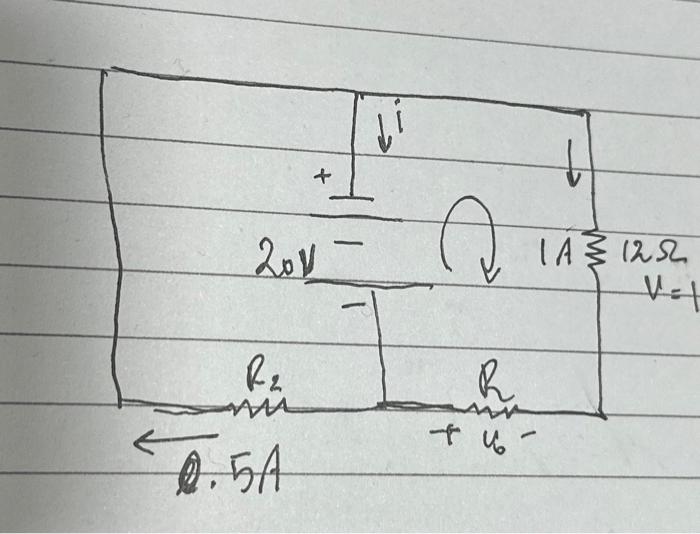 i
+
20V
−
−
1A
12Ω
V=1
R₂
R
+ v₀ -
0.5A